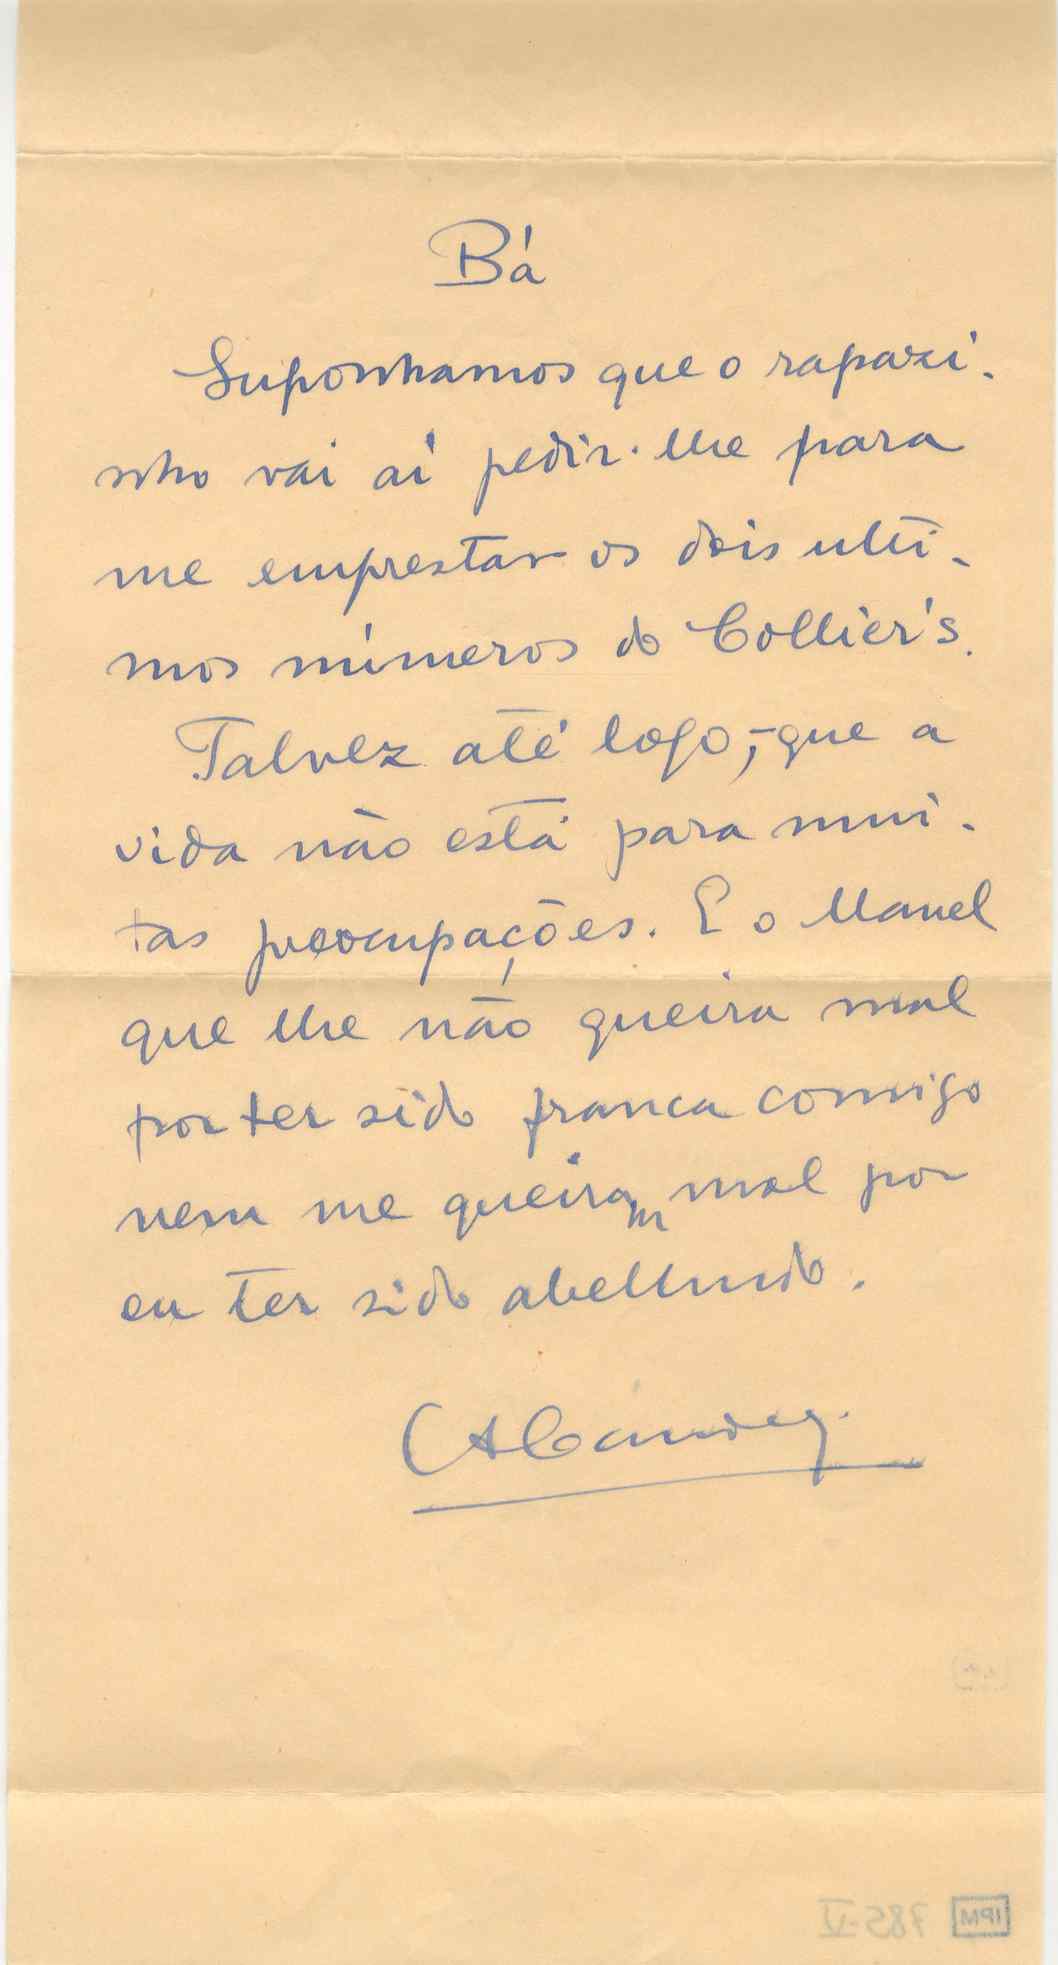 Bá
Suponhamos que o rapazi-
nho vai aí pedir-lhe para
me emprestar os dois ulti-
mos números do Collier's.
Talvez até logo, - que a
vida não está para mui-
tas preocupações. E o Manel
que lhe não queira mal
por ter sido franca comigo
nem me queiram mal por
eu ter sido abelhudo.
785-V IPM